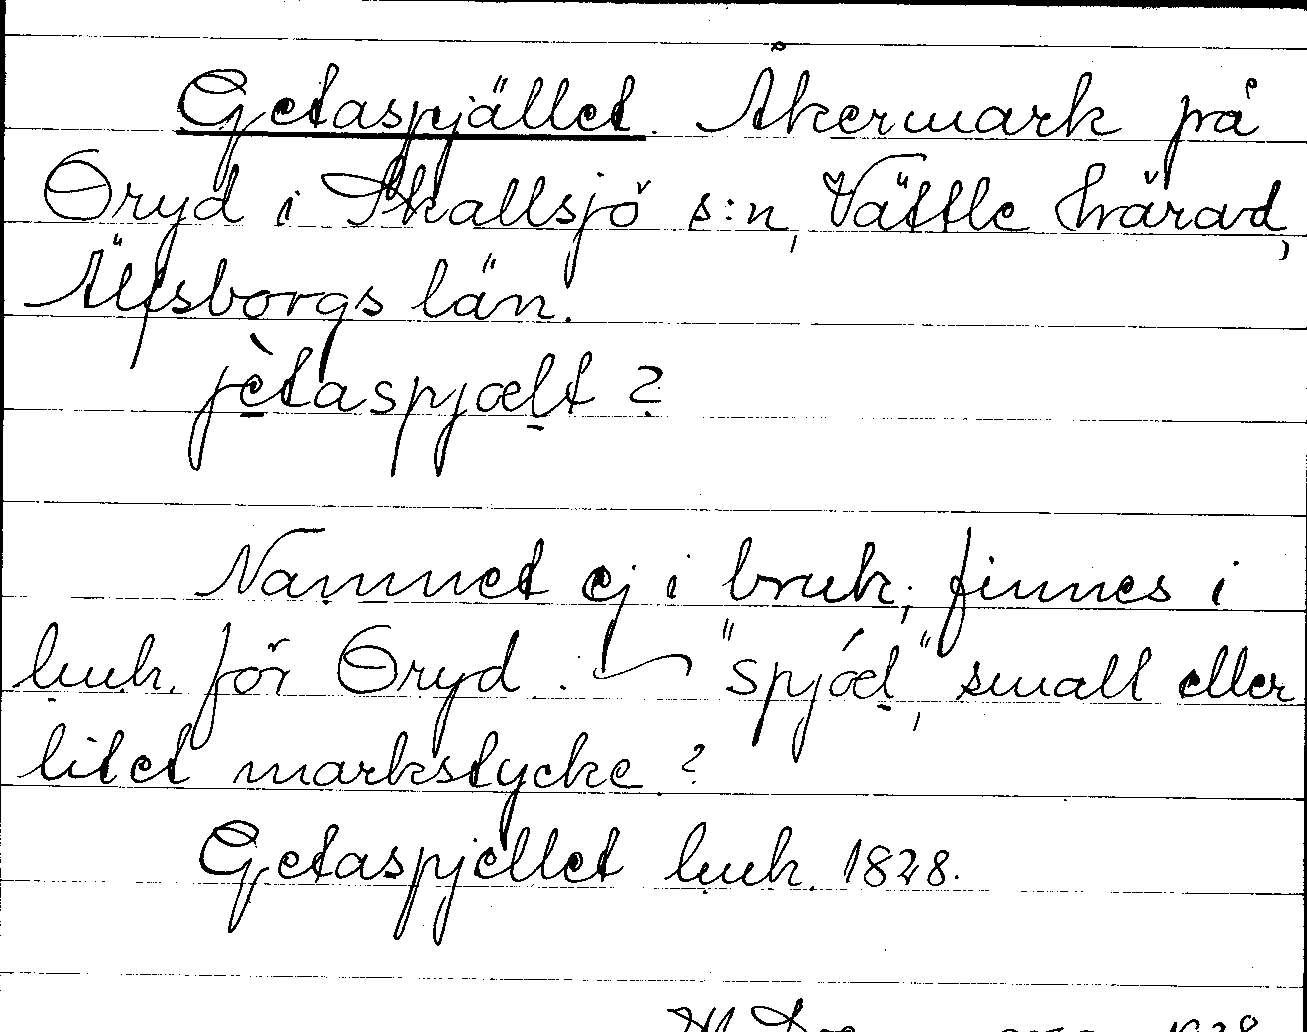 Getaspjället. Åkermark på
Öryd i Skallsjö s:n, Vättle härad,
Älfsborgs län.
jètaspjælt ?
Namnet ej i bruk; finnes i
luuk. för Öryd. "spjæl", small eller
litet markstycke ?
Getaspjellet luuk. 1828.